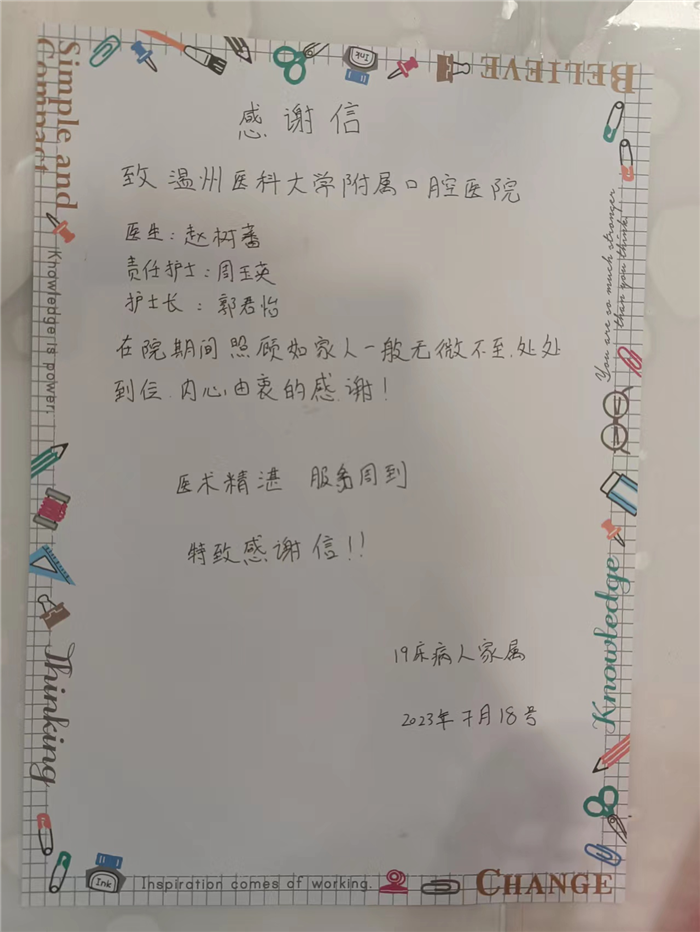 BELIEVE
Simple and
Compact
感谢信
致温州医科大学附属口腔医院
医生：赵树蕃
责任护士：周玉英
护士长：郭君怡
在院期间照顾如家人一般无微不至.处处
到位.内心由衷的感谢！
医术精湛 服务周到
特致感谢信!!
19床病人家属
2023年7月18号
You are so much stronger
than you think.
Knowledge is power.
Knowledge
Thinking
Ink
Ink
Inspiration comes of working.
CHANGE